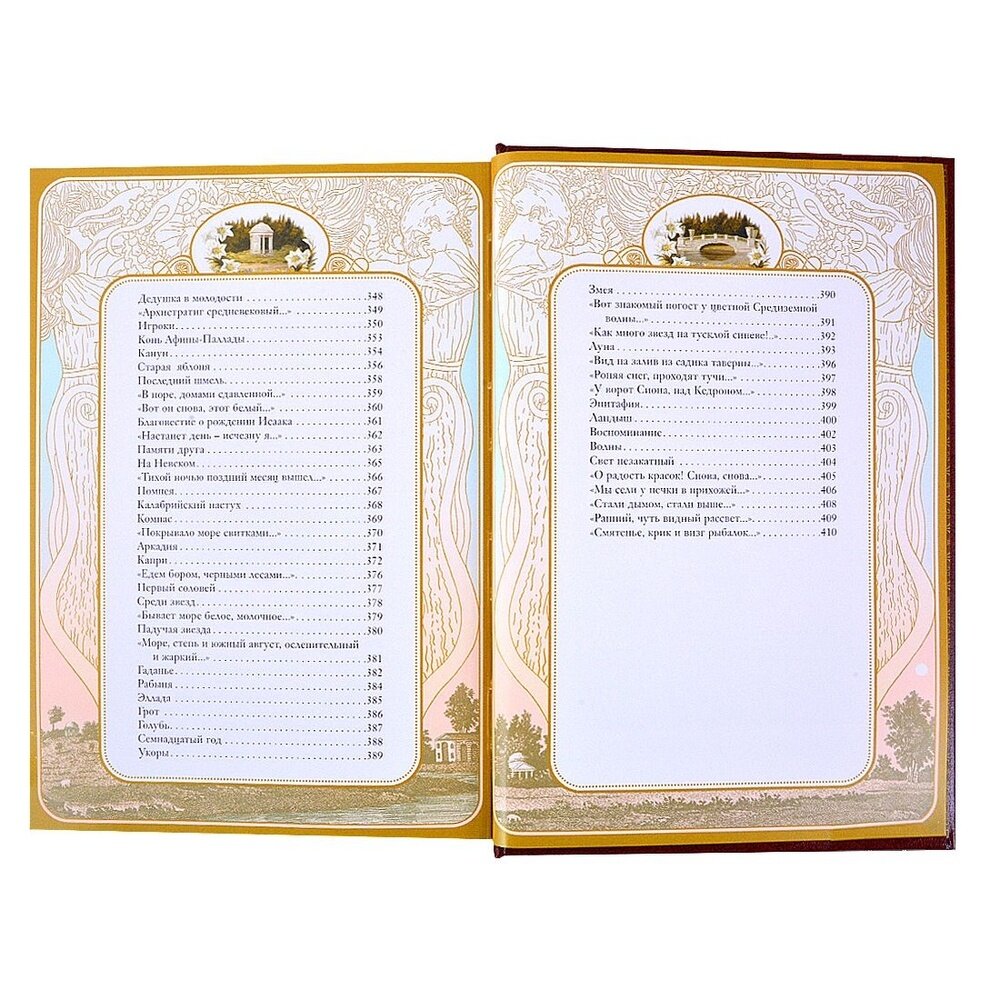 Дедушка в молодости ........................ 348
«Архистратиг средневековый...» ............... 349
Игроки ........................ 350
Конь Афины-Паллады ........................ 353
Канун ........................ 354
Старая яблоня ........................ 356
Последний шмель ........................ 358
«В норе, домами сдавленной...» ............... 359
«Вот он снова, этот белый...» ............... 360
Благовестие о рождении Исаака ............... 361
«Настанет день – исчезну я...» ............... 362
Памяти друга ........................ 363
На Невском ........................ 365
«Тихой ночью поздний месяц вышел...» ........ 366
Помпея ........................ 367
Калабрийский пастух ........................ 368
Компас ........................ 369
«Покрывало море свитками...» ............... 370
Аркадия ........................ 371
Капри ........................ 372
«Едем бором, черными лесами...» ............... 376
Первый соловей ........................ 377
Среди звезд ........................ 378
«Бывает море белое, молочное...» ............... 379
Падучая звезда ........................ 380
«Море, степь и южный август, ослепительный
и жаркий...» ........................ 381
Гаданье ........................ 382
Рабыня ........................ 384
Эллада ........................ 385
Грот ........................ 386
Голубь ........................ 387
Семнадцатый год ........................ 388
Укоры ........................ 389
Змея ........................ 390
«Вот знакомый погост у цветной Средиземной
волны...» ........................ 391
«Как много звезд на тусклой синеве!..» ........ 392
Луна ........................ 393
«Вид на залив из садика таверны...» ........ 396
«Роняя снег, проходят тучи...» ............... 397
«У ворот Сиона, над Кедроном...» ............... 398
Эпитафия ........................ 399
Ландыш ........................ 400
Воспоминание ........................ 402
Волны ........................ 403
Свет незакатный ........................ 404
«О радость красок! Снова, снова...» ........ 405
«Мы сели у печки в прихожей...» ............... 406
«Стали дымом, стали выше...» ............... 408
«Ранний, чуть видный рассвет...» ............... 409
«Смятенье, крик и визг рыбалок...» ............... 410